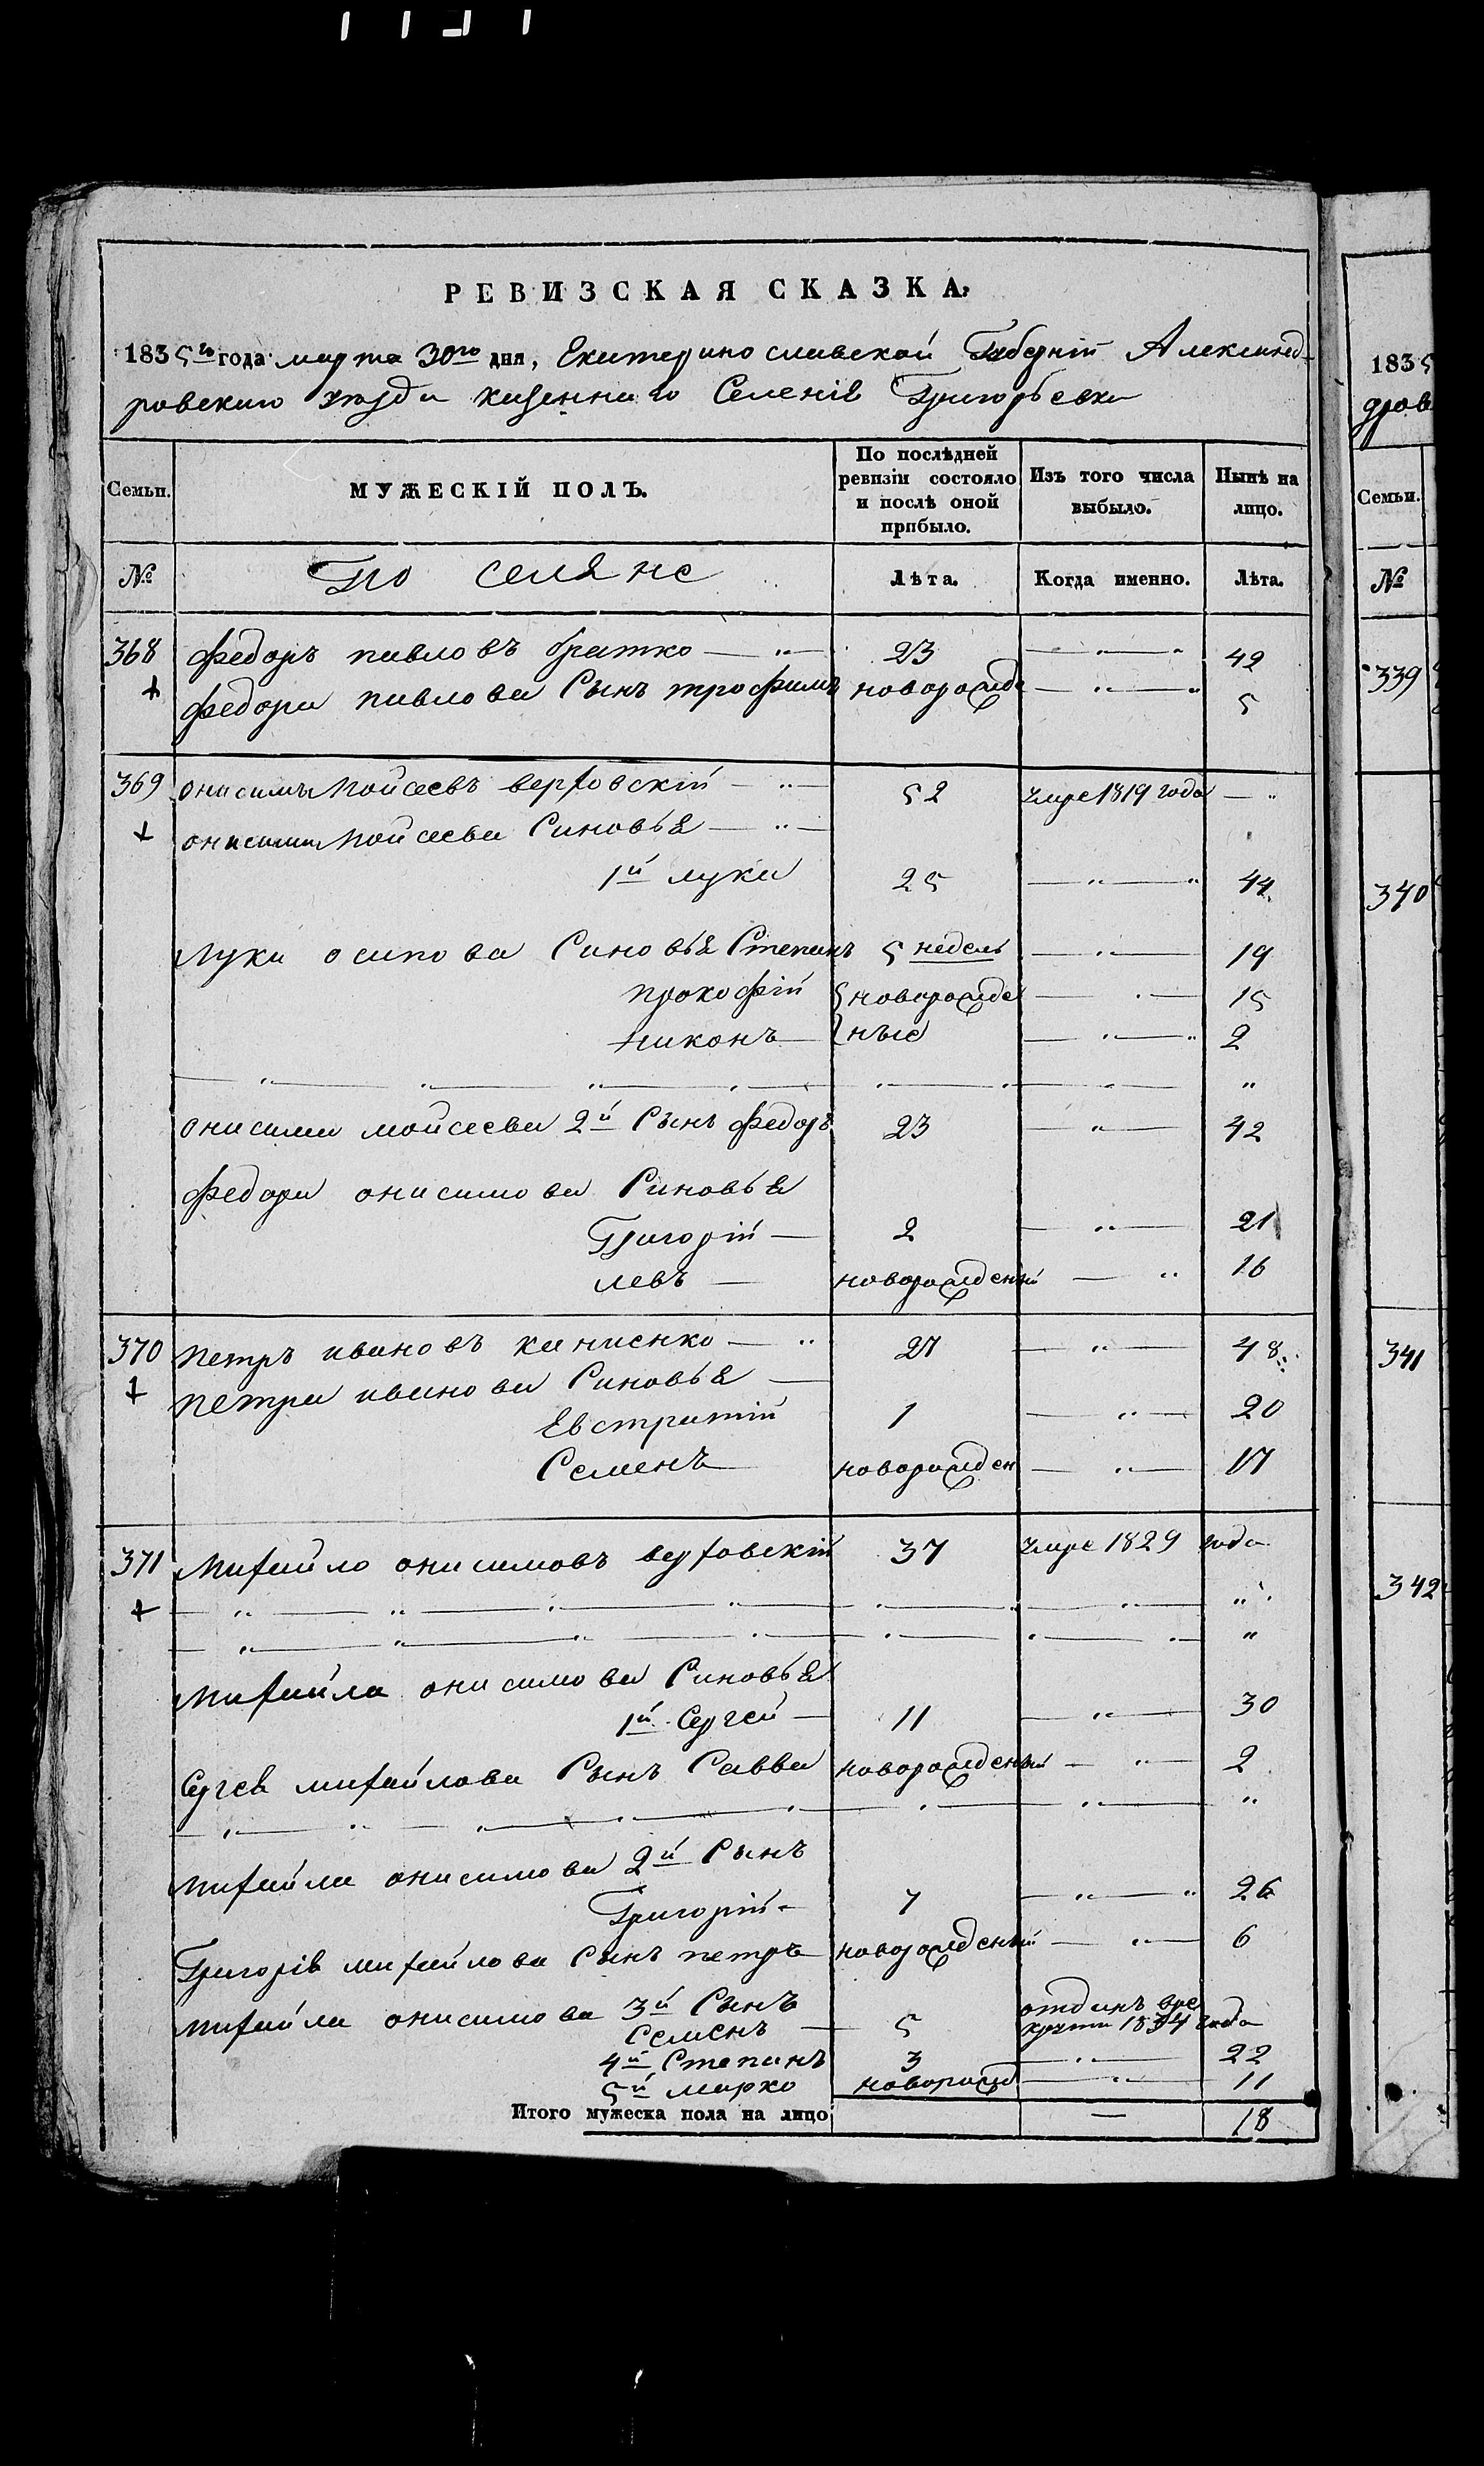 РЕВИЗСКАЯ СКАЗКА.
1835го года марта 30го дня, Екатеринославской Губерніи Александ-
ровскаго уезда казеннаго Селенія Григорьевки
Семьи.
МУЖЕСКІЙ ПОЛЪ.
По послѣдней ревизіи состояло и послѣ оной прибыло.
Изъ того числа выбыло.
Нынѣ на лицо.
№
Поселяне
Лѣта.
Когда именно.
Лѣта.
368 Федоръ павловъ братко — „ — 23 — „ — „ 42
+ Федора павлова Сынъ трофимъ новорожде — „ — „ 5
369 онисимъ Мойсеевъ верховскій — „ — 52 умре 1819 года — „
+ онисима Мойсеева Синовья — „ —
1й лука 25 — „ — „ 44
Луки осипова Синовья Степанъ 5 недель — „ — 19
прокофій новорожде — „ — 15
никонъ — ные — „ — „ 2
онисима мойсеева 2й Сынъ федоръ 23 — „ — 42
Федора онисимова Синовья
Григорій — 2 — „ — 21
левъ — новорожденый — „ 16
370 петръ ивановъ каниенко — „ 27 — „ — 48
+ петра иванова Синовья —
Евстратій 1 — „ — 20
Семенъ новорожден — „ — 17
371 Михайло онисимовъ верховскій 37 умре 1829 года
+
Михайла онисимова Синовья
1й Сергей — 11 — „ — 30
Сергея михайлова Сынъ Савва новорожденый — „ — 2
Михайла онисимова 2й Сынъ
Григорій — 7 — „ — „ 26
Григорія михайлова Сынъ петръ новорожденый — „ — 6
Михайла онисимова 3й Сынъ
Семенъ — 5 отданъ вре
круты 1834 года
4й Степанъ 3 — „ — 22
5й Марко новорожд — „ — 11
Итого мужеска пола на лицо — 18
1835
дров
Семьи.
№
339
340
341
342